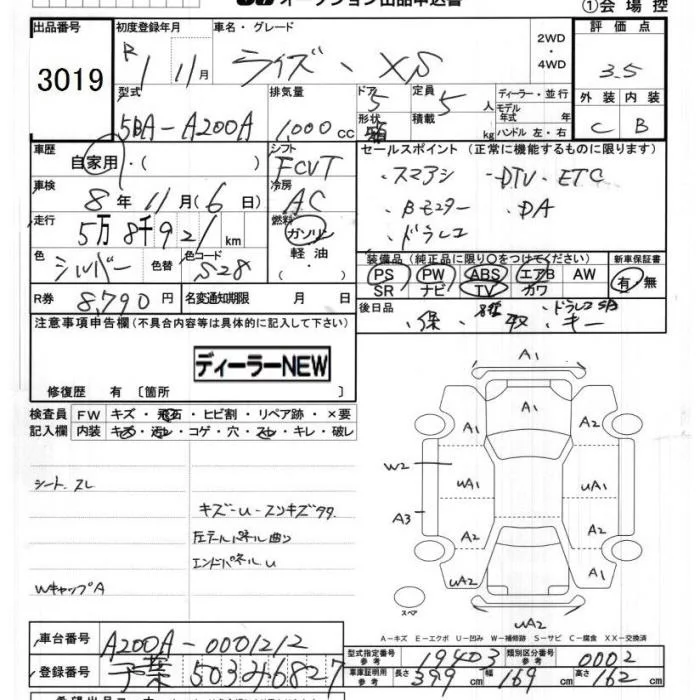 オークション出品申込書
①会場控
出品番号 3019
初度登録年月 R 1 11月
車名・グレード ライズ・XS
2WD・4WD
評価点 3.5
外装 C 内装 B
型式 5BA-A200A
排気量 1,000cc
ドア 5 形状 箱
定員 5人 積載 kg
ディーラー・並行
モデル年式 年
ハンドル 左・右
車歴 自家用・( )
シフト FCVT
セールスポイント (正常に機能するものに限ります)
・スマアシ ・DTV・ETC
・Bモニター ・DA
・ドラレコ
車検 8年11月(6日)
冷房 AC
走行 5万8千921km
燃料 ガソリン 軽油 ・( )
色 シルバー 色替 色コード S28
装備品 (純正品に限り○をつけてください)
PS PW ABS エアB AW
SR ナビ TV カワ
新車保証書 有・無
R券 8,790円
名変通知期限 月 日
後日品 ・保 ・取 ・キー ドラレコ
注意事項申告欄(不具合内容等は具体的に記入して下さい)
ディーラーNEW
修復歴 有〔箇所 〕
検査員記入欄
FW キズ・飛石・ヒビ割・リペア跡・×要
内装 キズ・汚レ・コゲ・穴・スレ・キレ・破レ
シート、スレ
キズ-U-スリキズタタ
左テールパネル曲り
エンドパネル.U
WキャップA
A1
A1
A1 A1
W2
UA1 UA1
A3
A2 A2
A2
UA2 A1
スペア
UA2
A-キズ E-エクボ U-凹み W-補修跡 S-サビ C-腐食 XX-交換済
車台番号 A200A-0001212
登録番号 千葉 503み6827
型式指定番号 参考 19403
類別区分番号 参考 0002
車庫証明用 参考 長さ 399cm 幅 169cm 高さ 162cm